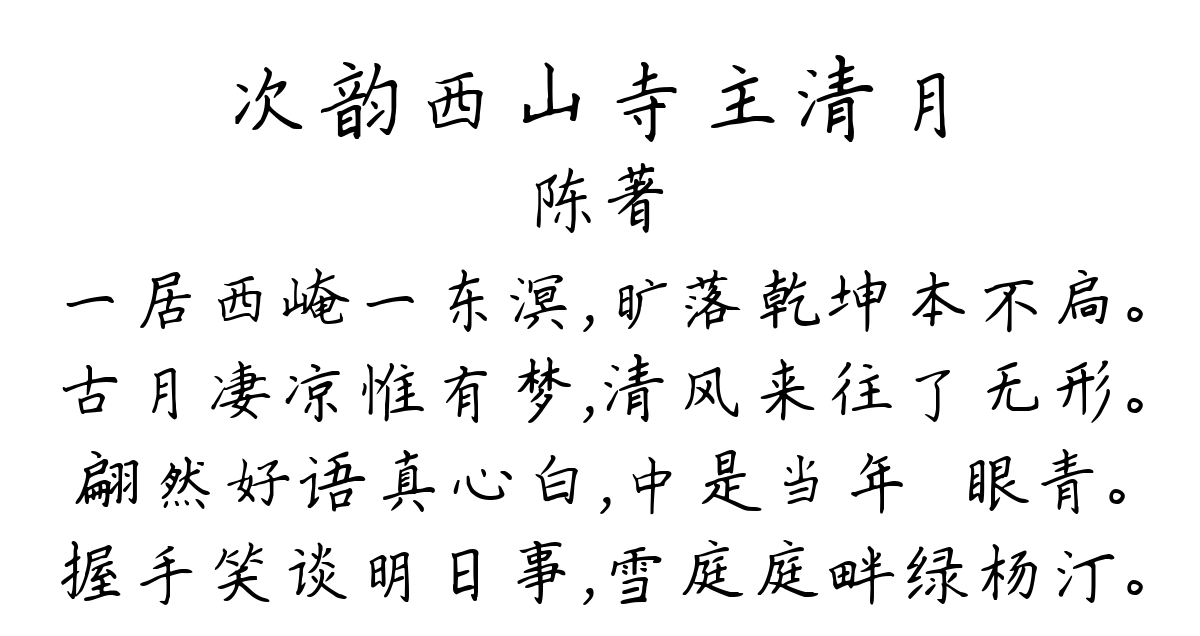 次韵西山寺主清月
陈著
一居西崦一东溟,旷落乾坤本不扃。
古月凄凉惟有梦,清风来往了无形。
翩然好语真心白,中是当年 眼青。
握手笑谈明日事,雪庭庭畔绿杨汀。